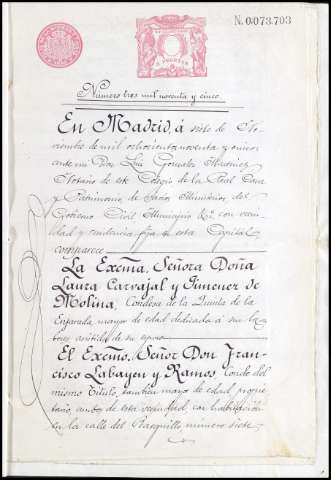 N. 0.073.703
Número tres mil noventa y cinco
En Madrid, á siete de No-
viembre de mil ochocientos noventa y cinco
ante mi Don Luis Gonzalez Martinez
Notario de este Colegio de la Real Casa
y Patrimonio, de varios Ministerios del
Gobierno Civil, Municipio &a, con vecin-
dad y residencia fija en esta Capital
comparece
La Excma. Señora Doña
Laura Carvajal y Jimenez de
Molina, Condesa de la Quinta de la
Enjarada, mayor de edad dedicada á su la-
bores asistida de su esposo
El Excmo. Señor Don Fran-
cisco Labayen y Ramos Conde del
mismo Título, tambien mayor de edad propie-
tario, ambos de esta vecindad, con habitacion
en la calle del Barquillo número siete